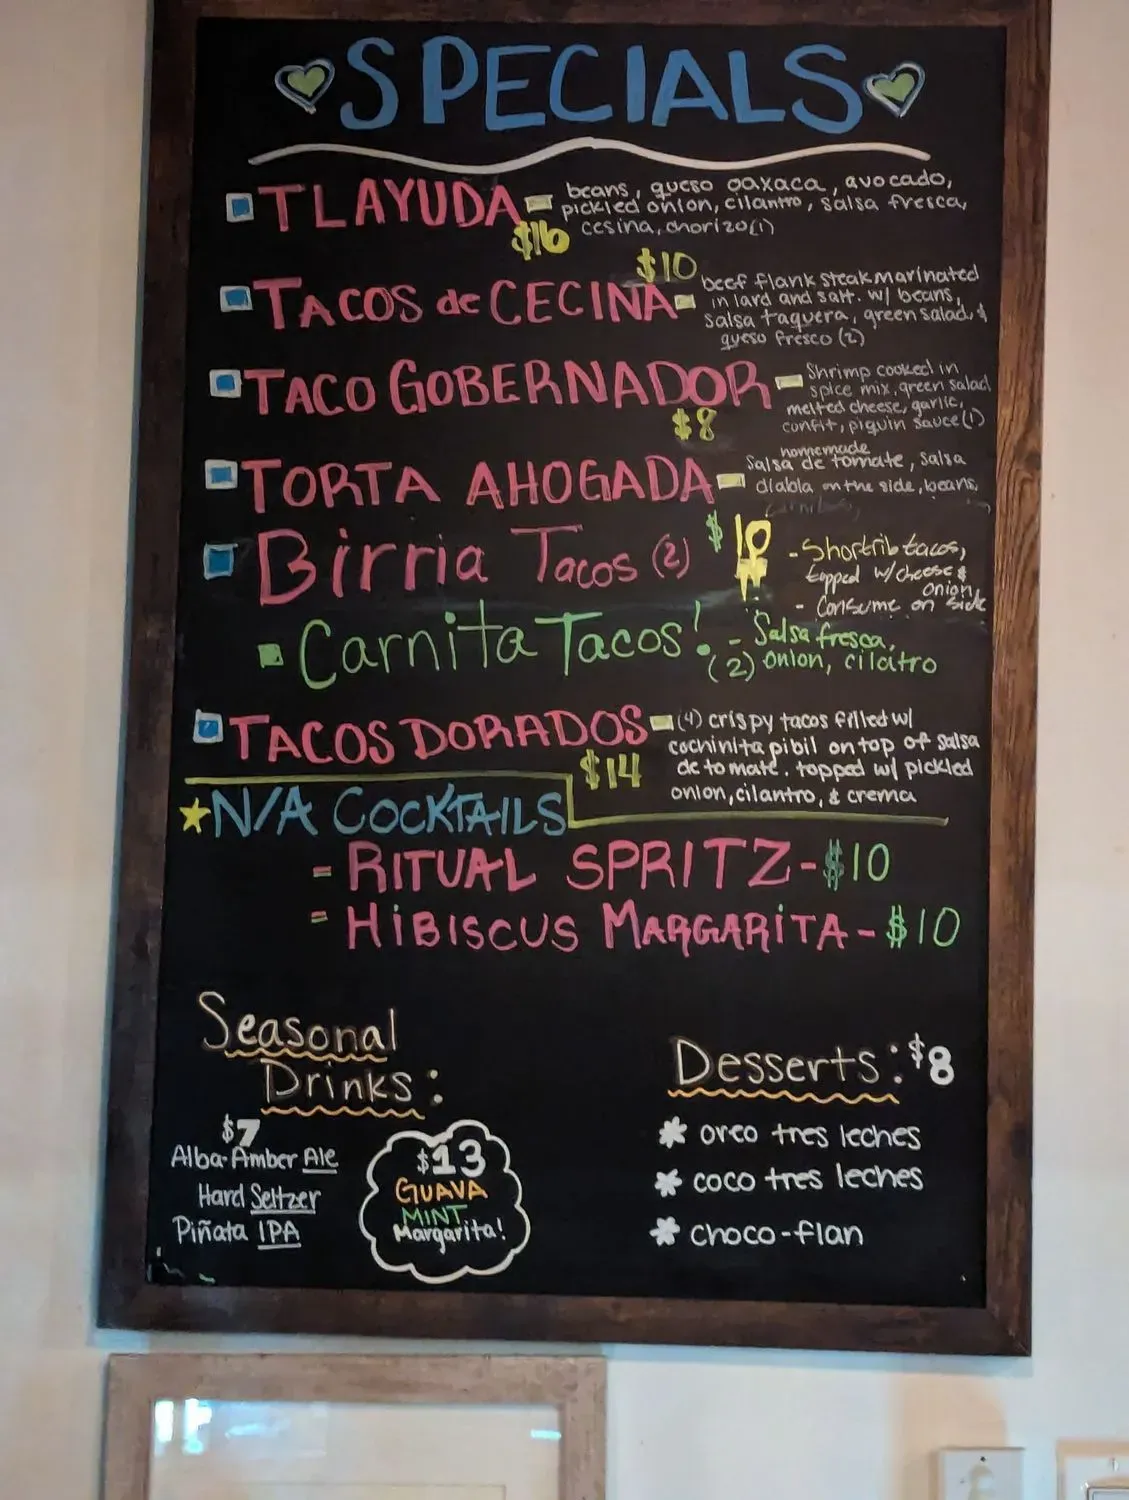 SPECIALS
TLAYUDA - beans, queso oaxaca, avocado,
pickled onion, cilantro, salsa fresca,
cesina, chorizo (1)
$16
$10
TACOS de CECINA - beef flank steak marinated
in lard and salt. w/ beans,
salsa taquera, green salad, &
queso fresco (2)
TACO GOBERNADOR - Shrimp cooked in
spice mix, green salad,
melted cheese, garlic,
confit, piquin sauce (1)
$8
TORTA AHOGADA - homemade
salsa de tomate, salsa
diabla on the side, beans,
Birria Tacos (2) $10 - Shortrib tacos,
topped w/ cheese &
onion,
- Consume on side
Carnita Tacos! - Salsa fresca,
(2) onion, cilatro
TACOS DORADOS - (4) crispy tacos filled w/
cochinita pibil on top of salsa
de tomate. topped w/ pickled
onion, cilantro, & crema
$14
N/A COCKTAILS
= RITUAL SPRITZ - $10
= HiBISCUS MARGARiTA - $10
Seasonal
Drinks:
$7
Alba-Amber Ale
Hard Seltzer
Piñata IPA
$13
GUAVA
MINT
Margarita!
Desserts: $8
* oreo tres leches
* coco tres leches
* choco-flan